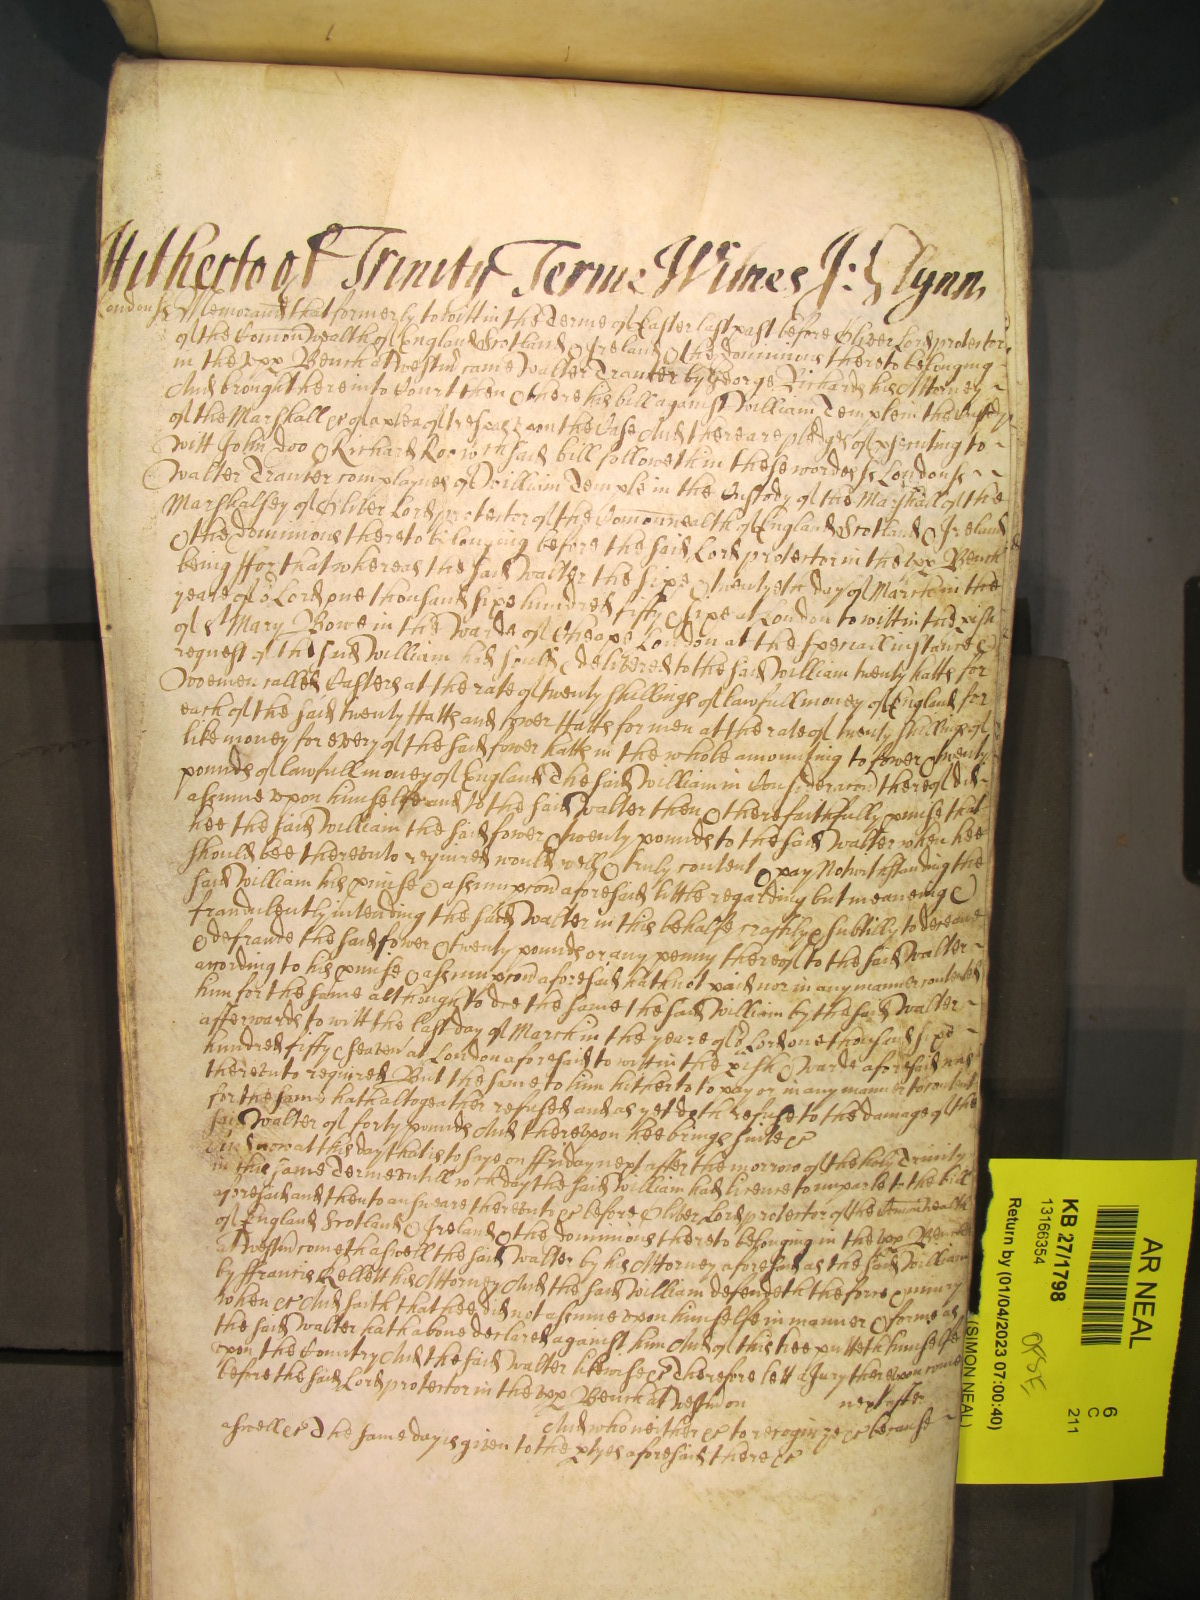 Hitherto of Trinity Terme Witnes J: Glynn
London ss Memorand that formerly to witt in the Terme of Easter last past before Oliver Lord protector
of the Comonwealth of England Scotland & Ireland & the dominions thereto belonging
in the upp Bench at Westm came Walter Tranter by George Richards his Attorney
And brought here into Court then & there his bill against William Temple in the Custody
of the Marshall &c of a plea of trespas upon the Case And there are pledges of psecuting to
witt John Doo & Richard Roo wch said bill followeth in these wordes ss London ss
Walter Tranter complaynes of William Temple in the Custody of the Marshall of the
Marshalsey of Oliver Lord protector of the Comonwealth of England Scotland & Ireland
& the dominions thereto belonging before the said Lord protector in the upp Bench
being For that whereas the said Walter the sixe & twentyeth day of March in the
yeare of or Lord one thousand sixe hundred fifty & sixe at London to witt in the pish
of St Mary Bowe in the Warde of Cheape London at the speciall instance &
request of the said William had sould & delivered to the said William twenty hatts for
Woemen called Casters at the rate of twenty shillings of lawfull money of England for
each of the said twenty Hatts and fower Hatts for men at the rate of twenty shillings of
like money for every of the said fower hatts in the whole amounting to fower & twenty
pounds of lawfull money of England The said William in Consideracon thereof did
assume upon himselfe and to the said Walter then & there faithfully pmise that
hee the said William the said fower & twenty pounds to the said Walter when hee
should bee thereunto required would well & truly content & pay Notwithstanding the
said William his pmise & assumpcon aforesaid little regarding but meaneing &
fraudulently intending the said Walter in this behalfe craftily & subtilly to deceave
& defraude the said fower & twenty pounds or any penny thereof to the said Walter
according to his pmise & assumpcon aforesaid hath not paid nor in any manner contented
him for the same although to doe the same the said William by the said Walter
afterwards to witt the last day of March in the yeare of or Lord one thousand sixe
hundred fifty & seaven at London aforesaid to witt in the pish & Warde aforesaid was
thereunto required But the same to him hitherto to pay or in any manner to content
for the same hath altogeather refused and as yet doth refuse to the damage of the
said Walter of forty pounds And thereupon hee brings suite &c
And now at this day that is to saye on Friday next after the morrow of the holy Trinity
in this same Terme untill wch day the said William had licence to imparle to the bill
aforesaid and then to answeare thereunto &c before Oliver Lord protector of the Comonwealth
of England Scotland & Ireland & the dominions thereto belonging in the upp Bench
at Westm cometh aswell the said Walter by his Attorney aforesaid as the said William
by Francis Kellett his Attorney And the said William defendeth the force & iniury
when &c And saith that hee did not assume upon himselfe in manner & forme as
the said Walter hath above declared against him And of this hee putteth himselfe
upon the Country And the said Walter likewise &c Therefore lett a Jury thereupon come
before the said Lord protector in the upp Bench at Westm on next after
And who neither &c to recognize &c because
aswell &c The same day is given to the ptyes aforesaid there &c
AR NEAL
KB 27/1798
13166354
Return by (01/04/2023 07:00:40)
(SIMON NEAL)
6
C
211